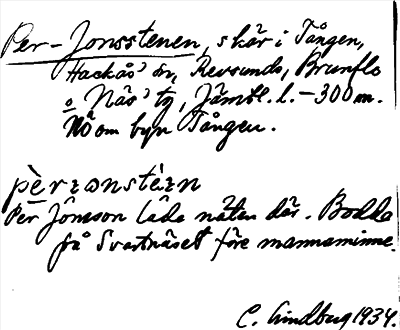 Per-Jonsstenen, skär i Tången,
Hackås' sn, Revsunds, Brunflo
o Näs' tg, Jämtl. l. – 300 m.
NÖ om byn Tången.
Per Jönsson lade näten där. Bodde
på Svartnäset före mannaminne.
C. Lindberg 1934.